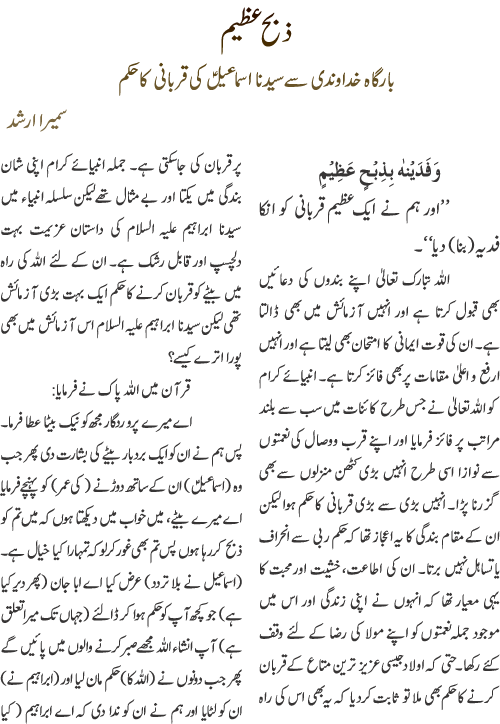 ذبح عظیم
بارگاہ خداوندی سے سیدنا اسماعیلؑ کی قربانی کا حکم
سمیرا ارشد
وَفَدَیْنٰہُ بِذِبْحٍ عَظِیْمٍ
’’اور ہم نے ایک عظیم قربانی کو انکا
فدیہ (بنا) دیا‘‘۔
اللہ تبارک تعالیٰ اپنے بندوں کی دعائیں
بھی قبول کرتا ہے اور انہیں آزمائش میں بھی ڈالتا
ہے۔ ان کی قوت ایمانی کا امتحان بھی لیتا ہے اور انہیں
ارفع و اعلیٰ مقامات پر بھی فائز کرتا ہے۔ انبیائے کرام
کو اللہ تعالیٰ نے جس طرح کائنات میں سب سے بلند
مراتب پر فائز فرمایا اور اپنے قرب و وصال کی نعمتوں
سے نوازا اسی طرح انہیں بڑی کٹھن منزلوں سے بھی
گزرنا پڑا۔ انہیں بڑی سے بڑی قربانی کا حکم ہوا لیکن
ان کے مقام بندگی کا یہ اعجاز تھا کہ حکم ربی سے انحراف
یا تساہل نہیں برتا۔ ان کی اطاعت، خشیت اور محبت کا
یہی معیار تھا کہ انہوں نے اپنی زندگی اور اس میں
موجود جملہ نعمتوں کو اپنے مولا کی رضا کے لئے وقف
کئے رکھا۔ حتی کہ اولاد جیسی عزیز ترین متاع کے قربان
کرنے کا حکم بھی ملا تو ثابت کر دیا کہ یہ بھی اس کی راہ
پر قربان کی جاسکتی ہے۔ جملہ انبیائے کرام اپنی شان
بندگی میں یکتا اور بے مثال تھے لیکن سلسلہ انبیاء میں
سیدنا ابراہیم علیہ السلام کی داستان عزیمت بہت
دلچسپ اور قابل رشک ہے۔ ان کے لئے اللہ کی راہ
میں بیٹے کو قربان کرنے کا حکم ایک بہت بڑی آزمائش
تھی لیکن سیدنا ابراہیم علیہ السلام اس آزمائش میں بھی
پورا اترے کیسے؟
قرآن میں اللہ پاک نے فرمایا:
اے میرے پروردگار مجھ کو نیک بیٹا عطا فرما۔
پس ہم نے ان کو ایک بردبار بیٹے کی بشارت دی پھر جب
وہ (اسماعیلؑ) ان کے ساتھ دوڑنے (کی عمر) کو پہنچے فرمایا
اے میرے بیٹے، میں خواب میں دیکھتا ہوں کہ میں تم کو
ذبح کر رہا ہوں پس تم بھی غور کرلو کہ تمہارا کیا خیال ہے۔
(اسماعیل نے بلا تردد) عرض کیا اے ابا جان (پھر دیر کیا
ہے) جو کچھ آپ کو حکم ہوا کر ڈالئے (جہاں تک میرا تعلق
ہے) آپ انشاء اللہ مجھے صبر کرنے والوں میں پائیں گے
پھر جب دونوں نے (اللہ کا) حکم مان لیا اور (ابراہیم نے)
ان کو لٹایا اور ہم نے ان کو ندا دی کہ اے ابراہیم (کیا